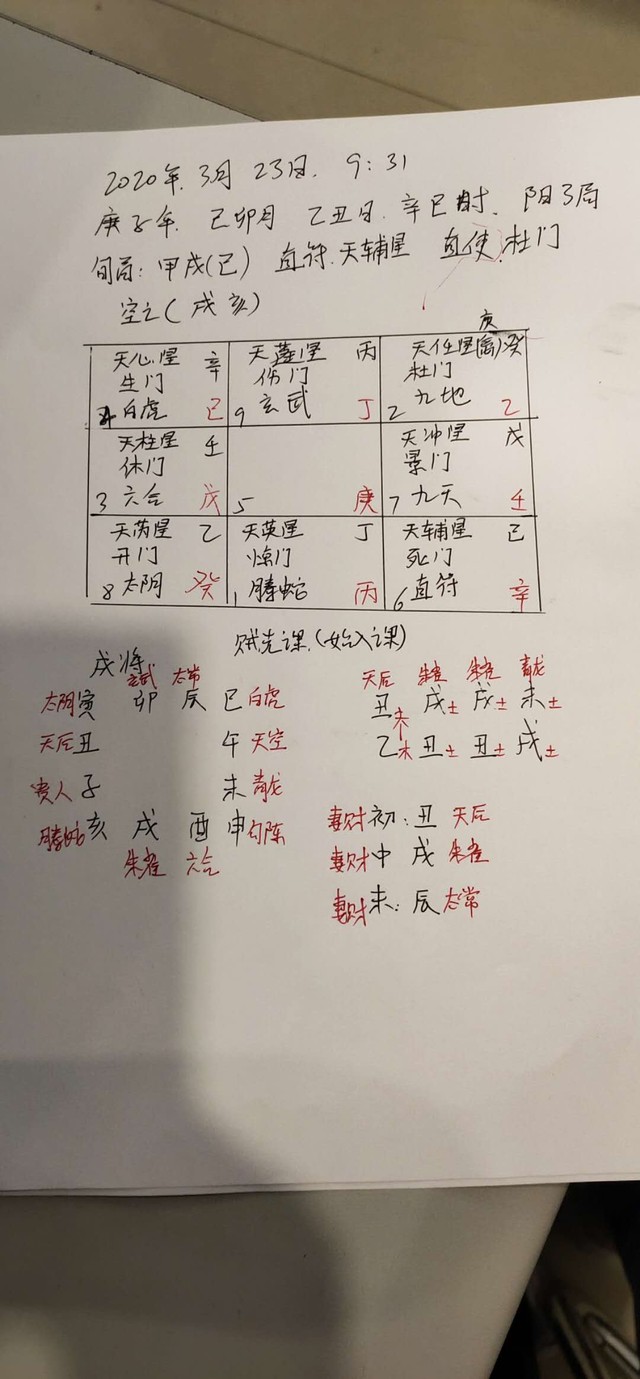 2020年.3月 23日. 9:31
庚子年. 己卯月 乙丑日. 辛巳时. 阳3局
旬首: 甲戌(己) 直符.天辅星 直使.杜门
空亡(戌亥)
庚
天心星 辛 天蓬星 丙 天任星(禽)癸
生门 伤门 杜门
4 白虎 己 9 玄武 丁 2 九地 乙
天柱星 壬 天冲星 戊
休门 景门
3 六合 戊 5 庚 7 九天 壬
天芮星 乙 天英星 丁 天辅星 己
开门 惊门 死门
8 太阴 癸 1 腾蛇 丙 6 直符 辛
贼克课.(始入课)
戌将
玄武 太常 天后 朱雀 朱雀 青龙
太阴寅 卯 辰 巳白虎 丑未 戌土 戌土 未土
天后丑 午天空 乙木 丑土 丑土 戌土
贵人子 未青龙
腾蛇亥 戌 酉 申勾陈 妻财初:丑 天后
朱雀 六合 妻财中 戌 朱雀
妻财末: 辰太常